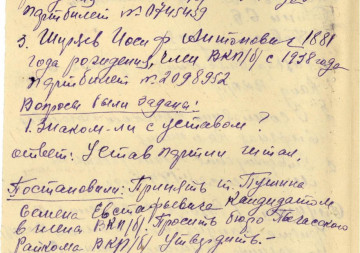 партбилет №0745439
3. Ширяев Иосиф Антонович 1881
года рождения, член ВКП/б/ с 1938 года
партбилет №2098952
Вопросы были заданы!
1. Знаком-ли с уставом?
ответ: Устав партии читал.
Постановили: Принять т. Пушина
Семена Евстафьевича кандидатом
в члена ВКП/б/. Просить бюро
Райкома ВКП/б/ Утвердить.-